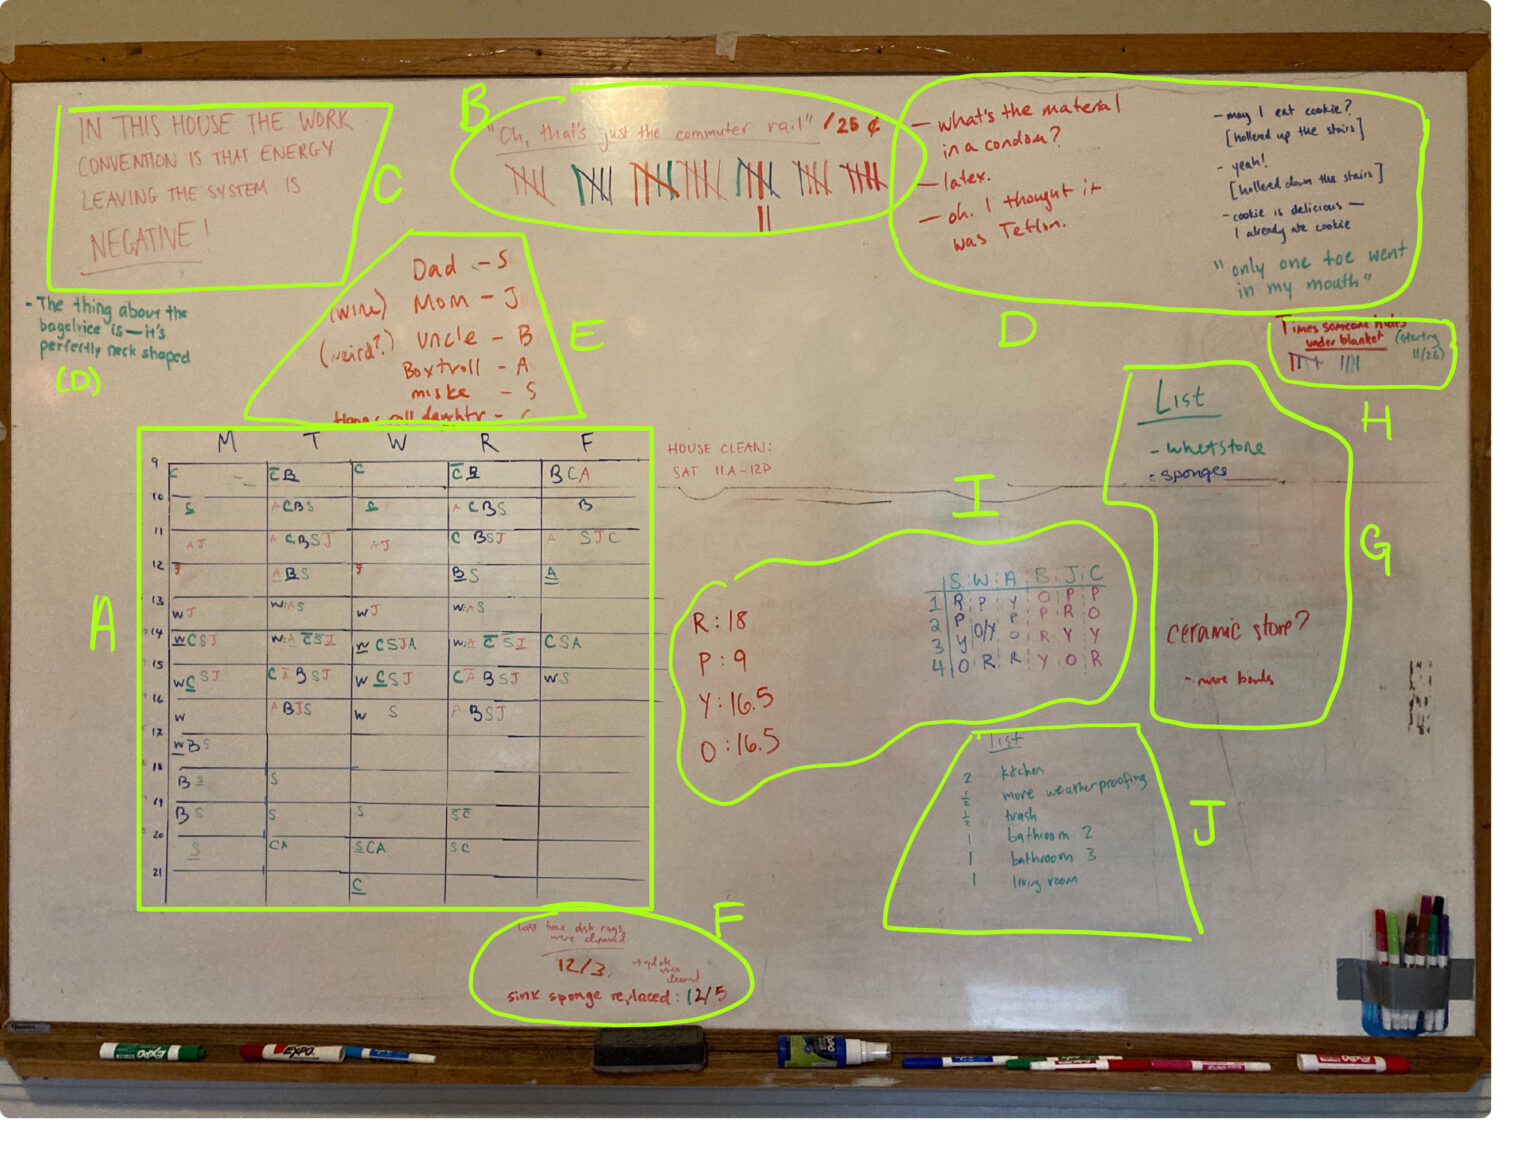 IN THIS HOUSE THE WORK
CONVENTION IS THAT ENERGY
LEAVING THE SYSTEM IS
NEGATIVE!
C
B
"Oh, that's just the commuter rail" /25¢
- what's the material
in a condom?
- latex.
- oh. I thought it
was Teflon.
- may I eat cookie?
[hollered up the stairs]
- yeah!
[hollered down the stairs]
- cookie is delicious —
I already ate cookie
"only one toe went
in my mouth"
D
- The thing about the
bagelvice is — it's
perfectly neck shaped
(D)
Dad - S
(wine) Mom - J
(weird?) Uncle - B
Boxtroll - A
miske - S
E
Times someone hides
under blanket (starting
11/26)
H
List
- whetstone
- sponges
G
ceramic store?
- more bowls
A
M T W R F
9 C C̅B C C̅B BCA
10 S ACBS S ACBS B
11 AJ ACBSJ AJ C BSJ A SJC
12 J ABS J BS A
13 WJ W:AS WJ W:AS
14 WCSJ W:A CSJ WCSJA W:A CSJ CSA
15 WCSJ CABSJ WCSJ CABSJ WS
16 W ABJS W S ABSJ
17 WBS
18 BS S
19 BS S S SC
20 S CA SCA SC
21 C
HOUSE CLEAN:
SAT 11A-12P
I
R: 18
P: 9
Y: 16.5
O: 16.5
S W A B J C
1 R P Y O P P
2 P O/Y P P R O
3 Y O R Y Y
4 O R R Y O R
J
list
2 kitchen
1/2 more weatherproofing
1/2 trash
1 bathroom 2
1 bathroom 3
1 living room
F
Last time dish rags
were cleaned
12/3 → update
when
cleaned
sink sponge replaced: 12/5
EXPO
EXPO
EXPO